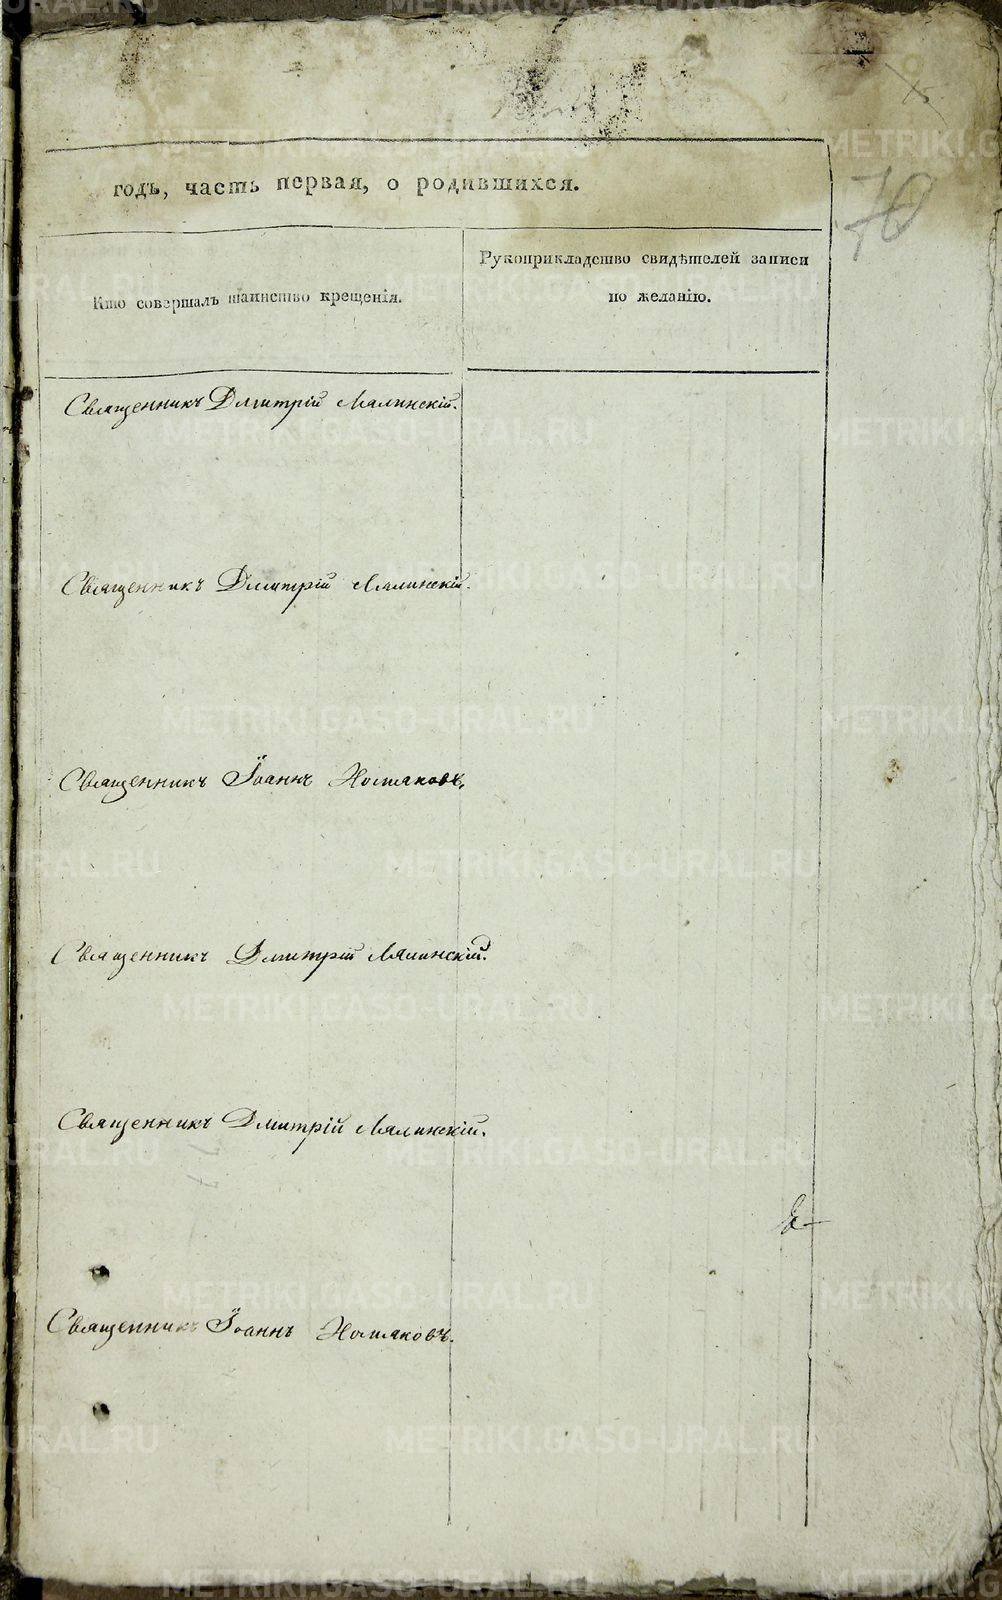 70
годъ, часть первая, о родившихся.
Кто совершалъ таинство крещенія.
Рукоприкладство свидѣтелей записи
по желанію.
Священникъ Дмитрій Лялинскій.
Священникъ Дмитрій Лялинскій.
Священникъ Іоаннъ
Священникъ Дмитрій Лялинскій.
Священникъ Дмитрій Лялинскій.
Священникъ Іоаннъ
METRIKI.GASO-URAL.RU